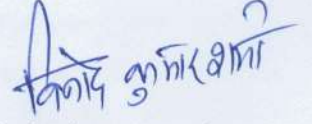 विनोद कुमार शर्मा